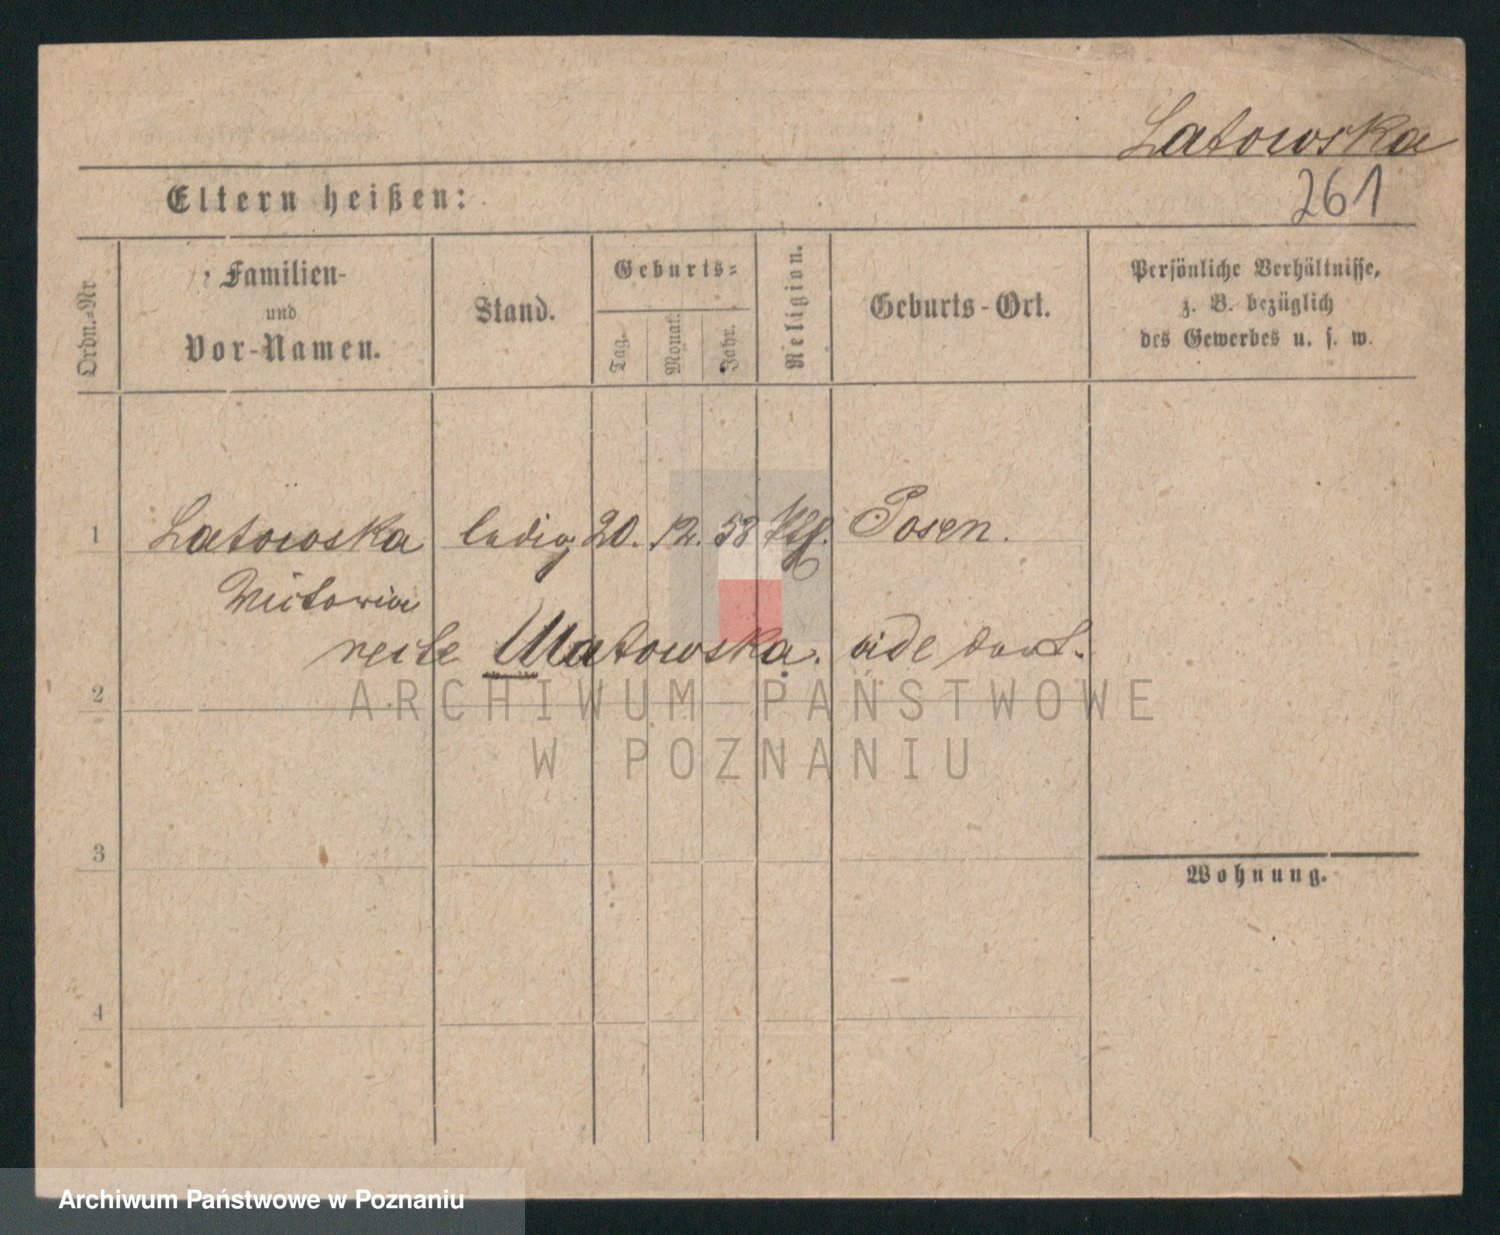 Latowska
261
Eltern heißen:
Ordn.=Nr
Familien-
und
Vor-Namen.
Stand.
Geburts=
Tag.
Monat.
Jahr.
Religion.
Geburts-Ort.
Persönliche Verhältnisse,
z. B. bezüglich
des Gewerbes u. s. w.
1 Latowska ledig 20. 12. 58 Posen.
Victoria
recte Matowska. vide dort.
2
ARCHIWUM PAŃSTWOWE
W POZNANIU
3
Wohnung.
4
Archiwum Państwowe w Poznaniu